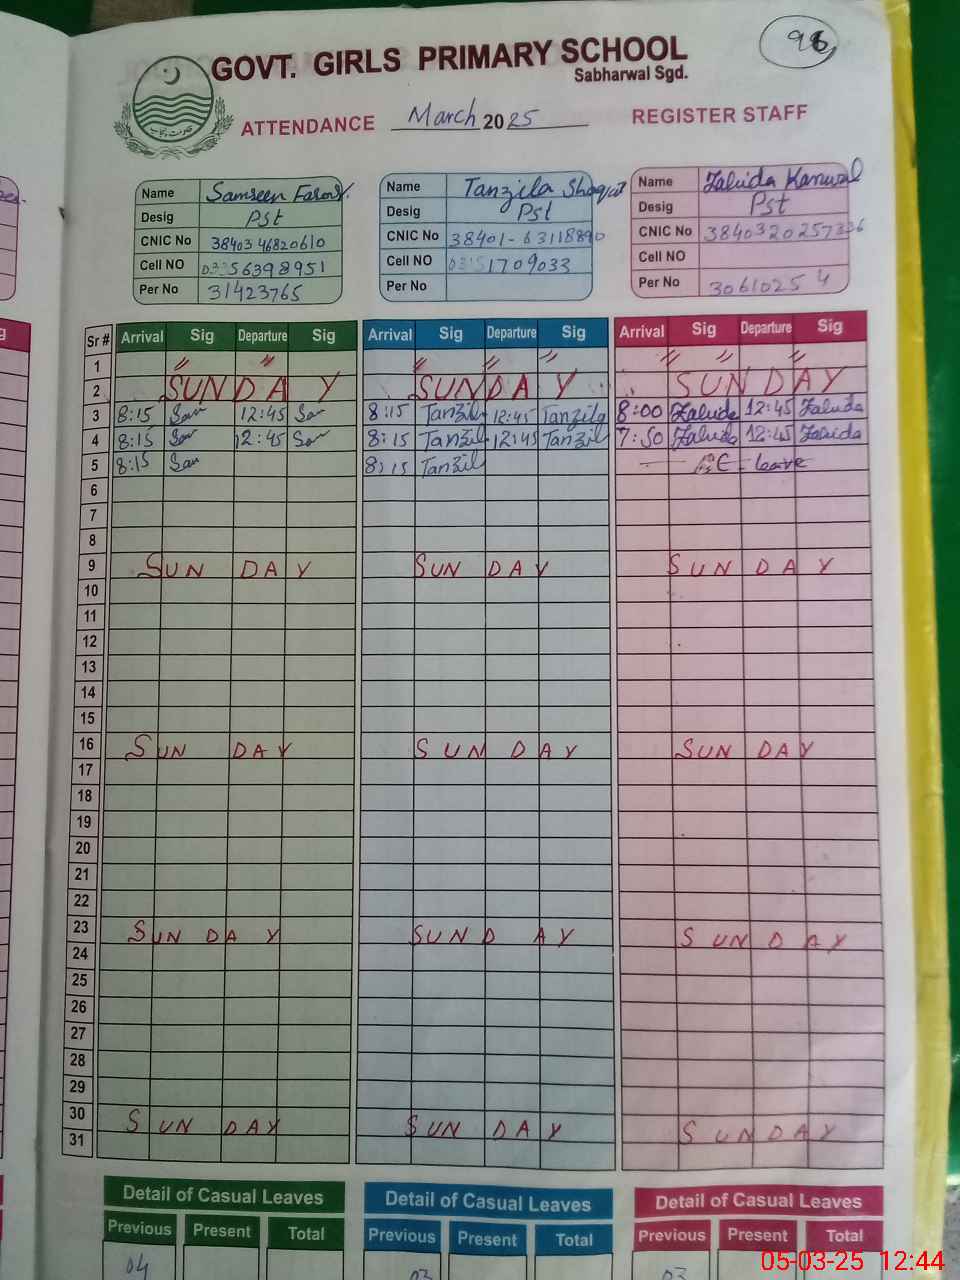 96
GOVT. GIRLS PRIMARY SCHOOL
Sabharwal Sgd.
ATTENDANCE March 2025 REGISTER STAFF
Name Samreen Farooq
Desig Pst
CNIC No 3840346820610
Cell NO 03356398951
Per No 31423765
Name Tanzila Shoqat
Desig Pst
CNIC No 38401-63118890
Cell NO 1709033
Per No
Name Zahida Kanwal
Desig Pst
CNIC No 3840320257336
Cell NO
Per No 30610254
Sr # Arrival Sig Departure Sig Arrival Sig Departure Sig Arrival Sig Departure Sig
1 〃 〃 〃 〃 〃 〃 〃 〃
2 SUNDAY SUNDAY SUNDAY
3 8:15 Sam 12:45 Sam 8:15 Tanzila 12:45 Tanzila 8:00 Zahida 12:45 Zahida
4 8:15 Sam 12:45 Sam 8:15 Tanzila 12:45 Tanzila 7:50 Zahida 12:45 Zahida
5 8:15 Sam 8:15 Tanzila leave
6
7
8
9 SUN DAY SUN DAY SUN DAY
10
11
12
13
14
15
16 SUN DAY SUN DAY SUN DAY
17
18
19
20
21
22
23 SUN DAY SUND AY SUN DAY
24
25
26
27
28
29
30 SUN DAY SUN DAY SUN DAY
31
Detail of Casual Leaves Detail of Casual Leaves Detail of Casual Leaves
Previous Present Total Previous Present Total Previous Present Total
04 03 03
05-03-25 12:44